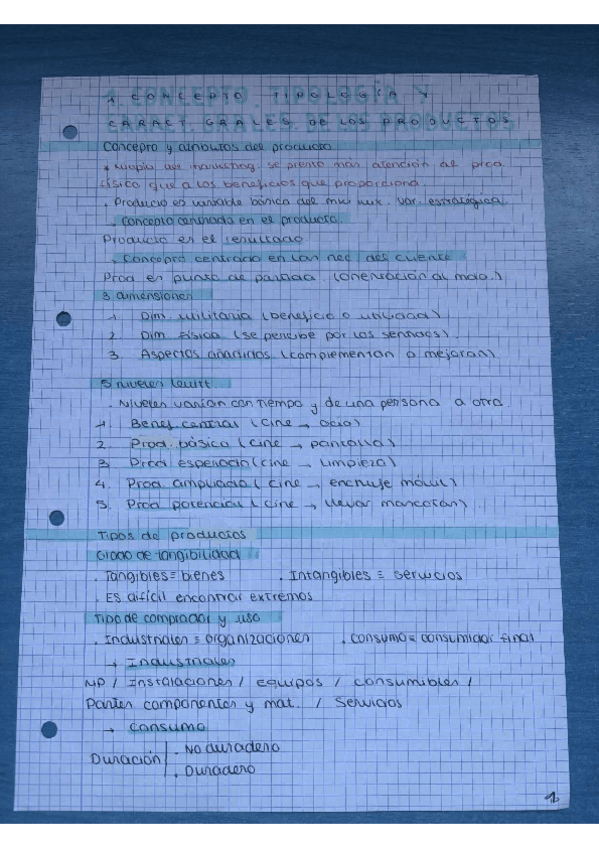 1. CONCEPTO, TIPOLOGÍA Y
CARACT. GRALES. DE LOS PRODUCTOS
Concepto y atributos del producto
* Miopía del marketing: se presta más atención al prod.
físico que a los beneficios que proporciona.
. Producto es variable básica del mk. Var. estratégica.
. Concepto centrado en el producto.
Producto es el resultado.
. Concepto centrado en las nec. del cliente
Prod. es punto de partida. (orientación al mdo.)
3 dimensiones
1. Dim. utilitaria (beneficio o utilidad)
2. Dim. Física (se percibe por los sentidos).
3. Aspectos añadidos (complementan o mejoran)
5 niveles Levitt
. Niveles varían con tiempo y de una persona a otra.
1. Benef. central (cine → ocio)
2. Prod. básico (cine → pantalla)
3. Prod. esperado (cine → limpieza)
4. Prod. ampliado (cine → enchufe móvil)
5. Prod. potencial (cine → llevar mascotas).
Tipos de productos
Grado de tangibilidad
. Tangibles = bienes . Intangibles = servicios
. Es difícil encontrar extremos
Tipo de comprador y uso
. Industriales = organizaciones . Consumo = consumidor final
→ Industriales
MP / Instalaciones / equipos / consumibles /
Partes componentes y mat. / Servicios
→ Consumo
Duración . No duradero
. Duradero
1